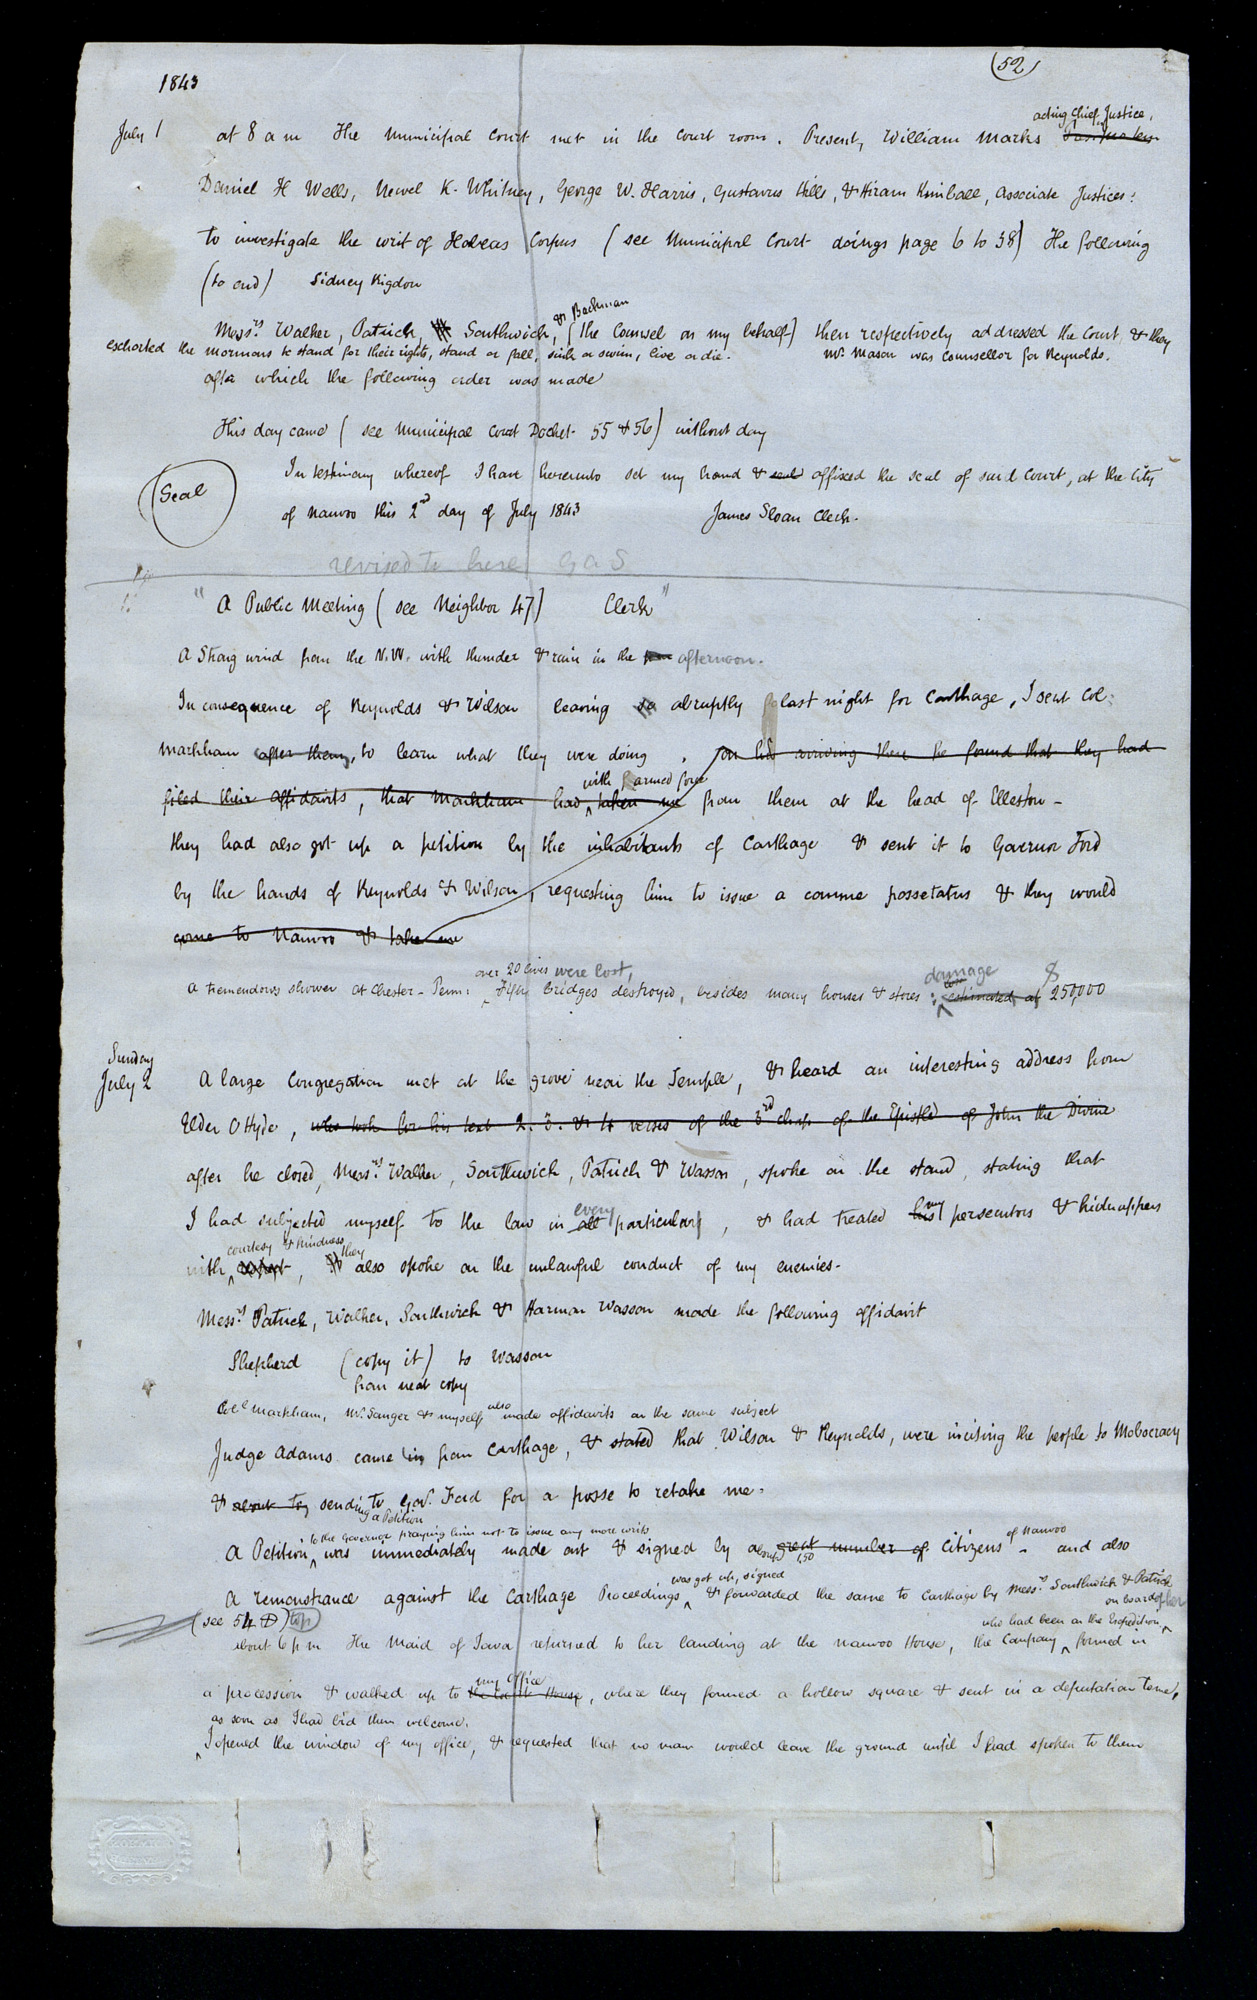 (52)
1843
acting Chief Justice,
July 1 at 8 a m The Municipal Court met in the Court room. Present, William Marks
Daniel H Wells, Newel K. Whitney, George W. Harris, Gustavus Hills, & Hiram Kimball, Associate Justices:
to investigate the writ of Habeas Corpus (see Municipal Court doings page 6 to 38) The following
(to end) Sidney Rigdon
& Backman
Messrs Walker, Patrick, Southwick, (the Counsel on my behalf) then respectively addressed the Court, & they
exhorted the mormons to stand for their rights, stand or fall, sink or swim, live or die. Mr. Mason was counsellor for Reynolds.
after which the following order was made
This day came (see Municipal Court Docket 55 & 56) without day
In testimony whereof I have hereunto set my hand & seal affixed the seal of said Court, at the City
(Seal)
of Nauvoo this 2nd day of July 1843 James Sloan Clerk.
revised to here G A S
"A Public Meeting (see Neighbor 47) Clerk"
A Strong wind from the N.W. with thunder & rain in the afternoon.
In consequence of Reynolds & Wilson leaving so abruptly last night for Carthage, I sent Col.
Markham after them, to learn what they were doing, on his arriving there he found that they had
with armed force
filed their affidavits, that Markham had taken me from them at the head of Elleston -
they had also got up a petition by the inhabitants of Carthage & sent it to Governor Ford
by the hands of Reynolds & Wilson, requesting him to issue a comme possetatus & they would
come to Nauvoo & take me
over 20 lives were lost,
damage
A tremendous shower at Chester - Penn: Fifty Bridges destroyed, besides many houses & stores: estimated at $250,000
Sunday
July 2 A large Congregation met at the grove near the Temple, & heard an interesting address from
Elder O Hyde, who took for his text 2. 3. & 4 verses of the 3rd chap of the Epistle of John the Divine
after he closed, Messrs Walker, Southwick, Patrick & Wasson, spoke on the stand, stating that
every my
I had subjected myself to the law in all particulars, & had treated his persecutors & kidnappers
courtesy & kindness they
with respect, also spoke on the unlawful conduct of my enemies -
Messrs Patrick, Walker, Southwick & Harmon Wasson made the following affidavit
Shepherd (copy it) to Wasson
from neat copy
also
Col Markham, Mr. Sanger & myself made affidavits on the same subject
Judge Adams came in from Carthage, & stated that Wilson & Reynolds, were inciting the people to Mobocracy
& about to sending to Gov. Ford for a posse to retake me.
a Petition
to the Governor praying him not to issue any more writs
of Nauvoo
A Petition was immediately made out & signed by about 150 great number of Citizens - and also
was got up, signed
A remonstrance against the Carthage Proceedings & forwarded the same to Carthage by Messrs Southwick & Patrick
on board of her
(see 54 D) top
who had been on the Expedition
about 6 p m The Maid of Iowa returned to her landing at the Nauvoo House, the Company formed in
my office
a procession & walked up to the Court House, where they formed a hollow square & sent in a deputation to me,
as soon as I had bid them welcome.
I opened the window of my office, & requested that no man would leave the ground until I had spoken to them